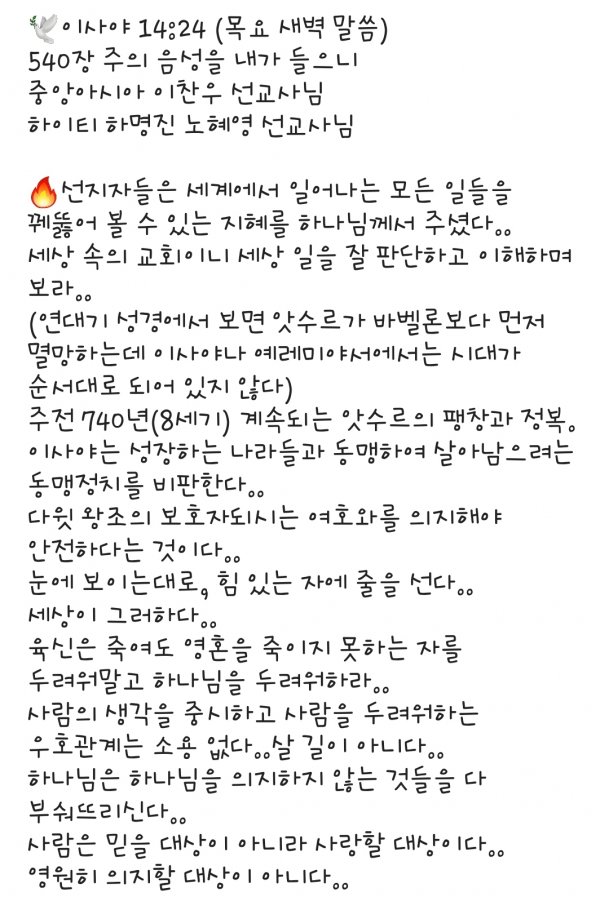 🕊이사야 14:24 (목요 새벽 말씀)
540장 주의 음성을 내가 들으니
중앙아시아 이찬우 선교사님
하이티 하명진 노혜영 선교사님
🔥선지자들은 세계에서 일어나는 모든 일들을
꿰뚫어 볼 수 있는 지혜를 하나님께서 주셨다..
세상 속의 교회이니 세상 일을 잘 판단하고 이해하며
보라..
(연대기 성경에서 보면 앗수르가 바벨론보다 먼저
멸망하는데 이사야나 예레미야서에서는 시대가
순서대로 되어 있지 않다)
주전 740년(8세기) 계속되는 앗수르의 팽창과 정복.
이사야는 성장하는 나라들과 동맹하여 살아남으려는
동맹정치를 비판한다..
다윗 왕조의 보호자되시는 여호와를 의지해야
안전하다는 것이다..
눈에 보이는대로, 힘 있는 자에 줄을 선다..
세상이 그러하다..
육신은 죽여도 영혼을 죽이지 못하는 자를
두려워말고 하나님을 두려워하라..
사람의 생각을 중시하고 사람을 두려워하는
우호관계는 소용 없다..살 길이 아니다..
하나님은 하나님을 의지하지 않는 것들을 다
부숴뜨리신다..
사람은 믿을 대상이 아니라 사랑할 대상이다..
영원히 의지할 대상이 아니다..